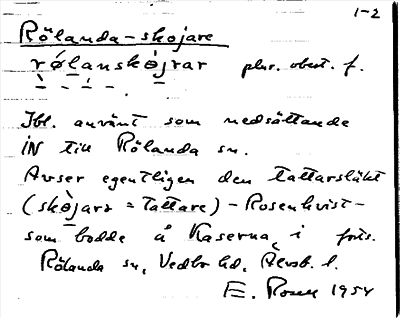 1-2
Rölanda-skojare
rǿlanskòjrar plur. obest. f.
Ibl. använt som nedsättande
IN till Rölanda sn.
Avser egentligen den tattarsläkt
(skòjarə = tattare) - Rosenkvist -
som bodde å Kaserna, i förs.
Rölanda sn, Vedbo hd, Älvsb. l.
E. Rosen 1954